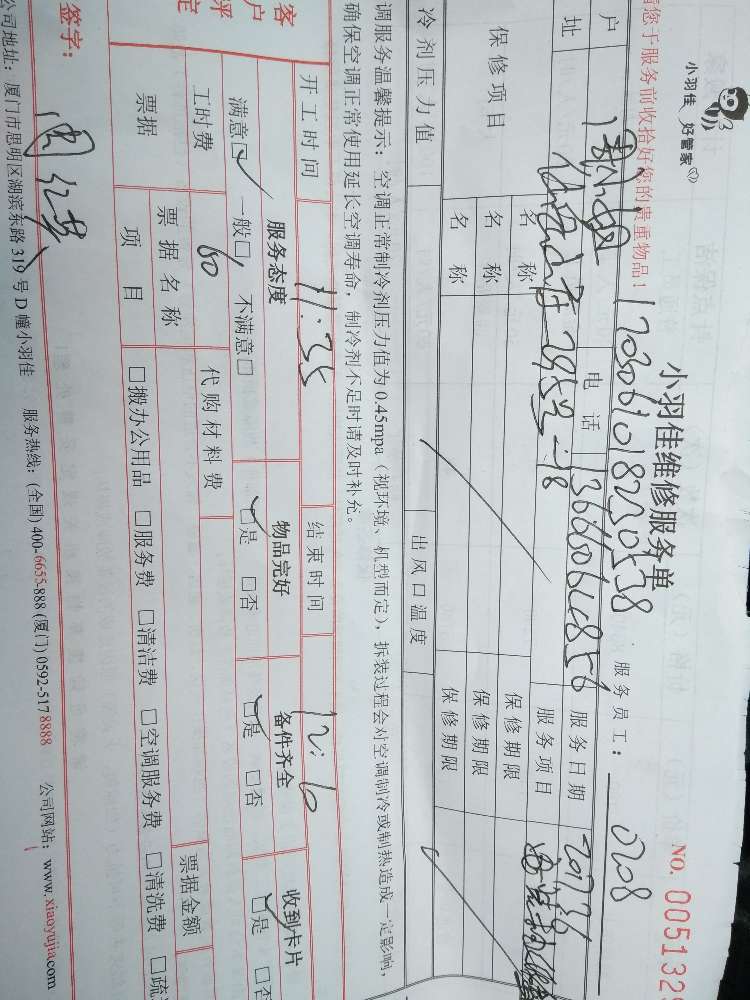 小羽佳 好管家
小羽佳维修服务单
NO. 005132
请您于服务前收拾好您的贵重物品！
服务员工： 0208
户 电话 13660064856 服务日期 2017.7.6
址 服务项目
保修项目 名称 保修期限
名称 保修期限
名称 保修期限
冷剂压力值 出风口温度
调服务温馨提示：空调正常制冷剂压力值为0.45mpa（视环境、机型而定），拆装过程会对空调制冷或制热造成一定影响，
确保空调正常使用延长空调寿命，制冷剂不足时请及时补充。
开工时间 11:35 结束时间 12:6
客户评定 服务态度 物品完好 备件齐全 收到卡片
满意☑ 一般□ 不满意□ ☑是 □否 ☑是 □否 ☑是 □否
工时费 60 代购材料费
票据 票据名称 票据金额
项目 □搬办公用品 □服务费 □清洁费 □空调服务费 □清洗费 □疏
签字：
公司地址：厦门市思明区湖滨东路319号D幢小羽佳 服务热线：(全国) 400-6655-888 (厦门) 0592-517 8888 公司网站：www.xiaoyujia.com